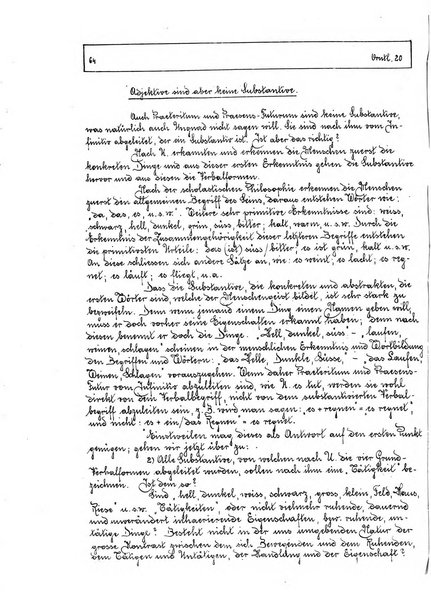 64 Vrntl. 20
Adjektive sind aber keine Substantive.
Auch Praeteritum und Praesens-Futurum sind keine Substantive,
was natürlich auch Ungnad nicht sagen will. Sie sind nach ihm vom In-
finitiv abgeleitet, der ein Substantiv ist. Ist aber das richtig?
Nach U. erkannten und erkennen die Menschen zuerst die
konkreten Dinge und aus dieser ersten Erkenntnis gehen die Substantive
hervor und aus diesen die Verbalformen.
Nach der scholastischen Philosophie erkennen die Menschen
zuerst den allgemeinen Begriff des Seins, daraus entstehen Wörter wie:
da, das, es, u.s.w. Weitere sehr primitive Erkenntnisse sind: weiss,
schwarz, hell, dunkel, grün, süss, bitter; kalt, warm, u.s.w. Durch die
Erkenntnis der Zusammengehörigkeit dieser letzteren Begriffe entstehen
die primitivsten Urteile: das (ist) süss, bitter; es ist grün, kalt u.s.w.
An diese schliessen sich andere Sätze an, wie: es weint, es lacht; es reg-
net; es läuft; es fliegt, u.a.
Dass die Substantive, die konkreten und abstrakten, die
ersten Wörter sind, welche der Menschengeist bildet, ist sehr stark zu
bezweifeln. Denn wenn jemand einem Ding einen Namen geben will,
muss er doch vorher seine Eigenschaften erkannt haben; denn nach
diesen benennt er doch die Dinge. "Hell, dunkel, süss" -, "laufen,
weinen, schlagen" scheinen in der menschlichen Erkenntnis und Wortbildung
den Begriffen und Wörtern: "das Helle, Dunkle, Süsse," - "das Laufen,
Weinen, Schlagen" vorauszugehen. Wenn daher Praeteritum und Praesens-
Futur vom Infinitiv abzuleiten sind, wie U. es tut, werden sie wohl
direkt von dem Verbalbegriff, nicht von dem substantivierten Verbal-
begriff abzuleiten sein, z.B. wird man sagen: "es + regnen = es regnet"
und nicht: "es + ein/das Regnen = es regnet."
Einstweilen mag dieses als Antwort auf den ersten Punkt
genügen; gehen wir jetzt über zu:
2) Alle Substantive, von welchen nach U. die vier Grund-
Verbalformen abgeleitet wurden, sollen nach ihm eine "Tätigkeit" be-
zeichnen. Ist dem so?
Sind "hell, dunkel, weiss, schwarz, gross, klein, Feld, Haus,
Riese" u.s.w. "Tätigkeiten", oder nicht vielmehr ruhende, dauernd
und unverändert inhaerierende Eigenschaften, bzw. ruhende, un-
tätige Dinge? Besteht nicht in der uns umgebenden Natur der
grosse Kontrast zwischen dem sich Bewegenden und dem Ruhenden,
dem Tätigen und Untätigen, der Handlung und der Eigenschaft?